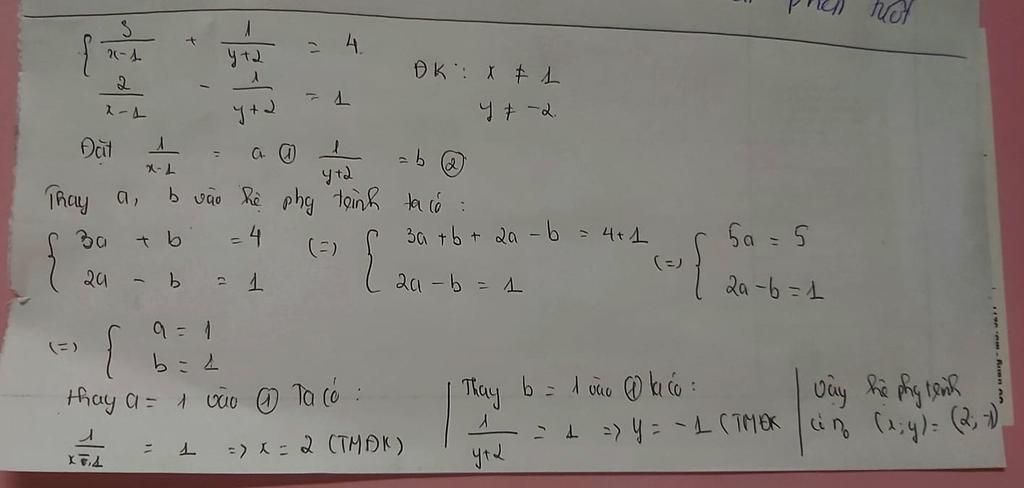 phần tốt
{ 3/(x-1) + 1/(y+2) = 4
2/(x-1) - 1/(y+2) = 1
ĐK: x ≠ 1
y ≠ -2
Đặt 1/(x-1) = a ① 1/(y+2) = b ②
Thay a, b vào hệ phg trình ta có:
{ 3a + b = 4 (=) { 3a + b + 2a - b = 4+1 (=) { 5a = 5
2a - b = 1 2a - b = 1 2a - b = 1
(=) { a = 1
b = 1
thay a = 1 vào ① Ta có:
1/(x-1) = 1 => x = 2 (TMĐK)
Thay b = 1 vào ① ta có:
1/(y+2) = 1 => y = -1 (TMĐK
Vậy hệ phg trình
có no (x;y) = (2;-1)